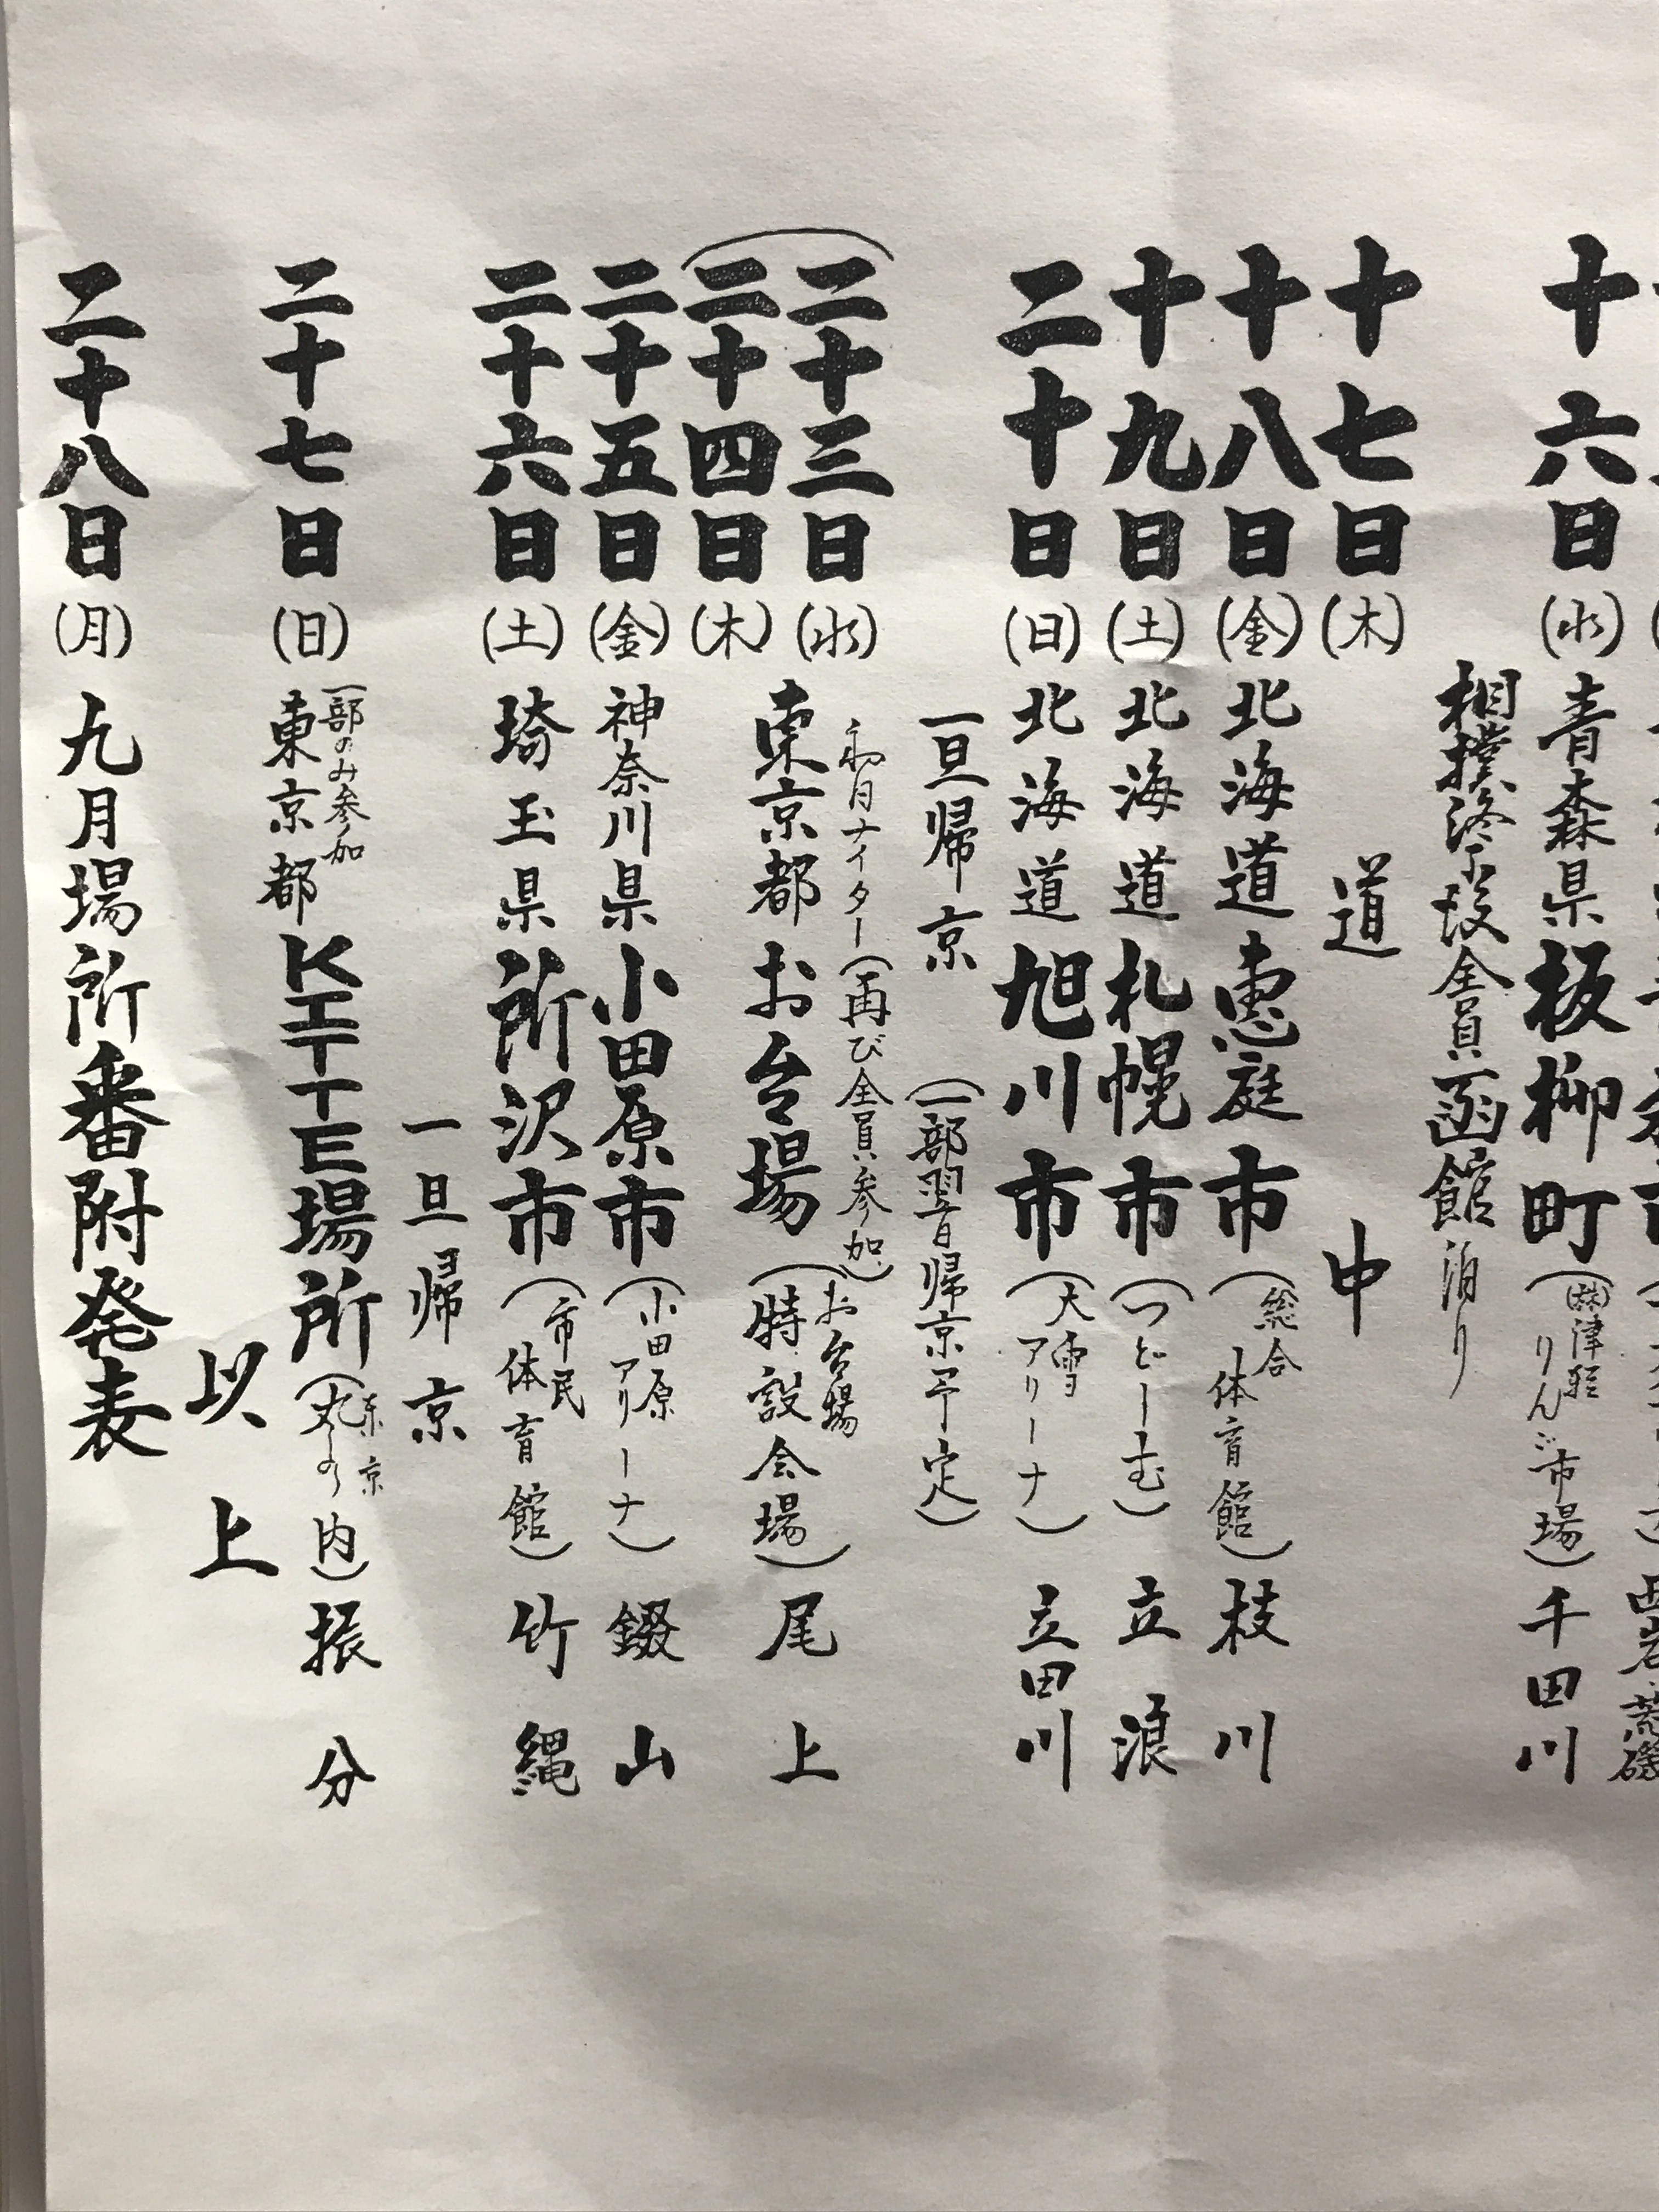 十六日(水)青森県板柳町(㈱津軽りんご市場)千田川
相撲終了後全員函館泊り
十七日(木)道中
十八日(金)北海道恵庭市(総合体育館)枝川
十九日(土)北海道札幌市(つどーむ)立浪
二十日(日)北海道旭川市(大雪アリーナ)立田川
一旦帰京(一部翌日帰京予定)
二十三日(水)
二十四日(木)
両日ナイター(再び全員参加)
東京都お台場(お台場特設会場)尾上
二十五日(金)神奈川県小田原市(小田原アリーナ)錣山
二十六日(土)埼玉県所沢市(市民体育館)竹縄
一旦帰京
二十七日(日)一部のみ参加
東京都KITTE場所(東京丸の内)振分
以上
二十八日(月)九月場所番附発表